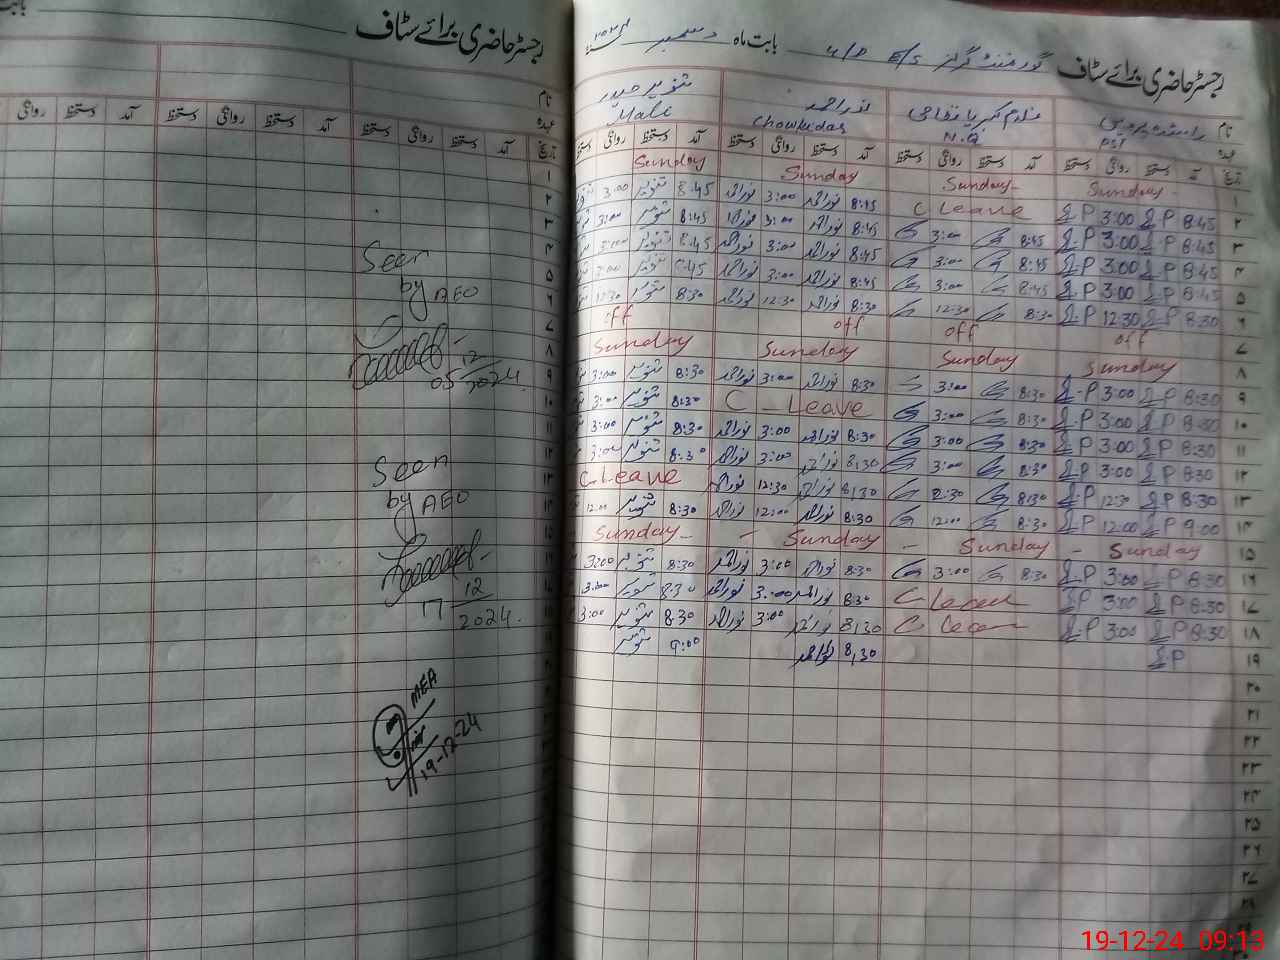 رجسٹر حاضری برائے سٹاف گورنمنٹ گرلز E/S 4/P بابت ماہ دسمبر
نام تنویر حیدر نور احمد
عہدہ PST N.Q Chowkidar Mali
تاریخ آمد دستخط روانگی دستخط آمد دستخط روانگی دستخط آمد دستخط روانگی دستخط آمد دستخط روانگی دستخط
۱ Sunday Sunday Sunday Sunday
۲ 8:45 P 3:00 P C Leave 8:45 نور احمد 3:00 نور احمد 8:45 تنویر 3:00
۳ 8:45 P 3:00 P 8:45 3:00 8:45 نور احمد 3:00 نور احمد 8:45 تنویر 3:00
۴ 8:45 P 3:00 P 8:45 3:00 8:45 نور احمد 3:00 نور احمد 8:45 تنویر 3:00
۵ 8:45 P 3:00 P 8:45 3:00 8:45 نور احمد 3:00 نور احمد 8:45 تنویر 3:00
۶ 8:30 P 12:30 P 8:30 12:30 8:30 نور احمد 12:30 نور احمد 8:30 تنویر 12:30
۷ off off off off
۸ Sunday Sunday Sunday Sunday
۹ 8:30 P 3:00 P 8:30 3:00 8:30 نور احمد 3:00 نور احمد 8:30 تنویر 3:00
۱۰ 8:30 P 3:00 P 8:30 3:00 C - Leave 8:30 تنویر 3:00
۱۱ 8:30 P 3:00 P 8:30 3:00 8:30 نور احمد 3:00 نور احمد 8:30 تنویر 3:00
۱۲ 8:30 P 3:00 P 8:30 3:00 8:30 نور احمد 3:00 نور احمد 8:30 تنویر 3:00
۱۳ 8:30 P 12:30 P 8:30 8:30 نور احمد 12:30 نور احمد C Leave
۱۴ 9:00 P 12:00 P 8:30 12:00 8:30 نور احمد 12:00 نور احمد 8:30 تنویر 12:00
۱۵ Sunday - Sunday - Sunday - Sunday -
۱۶ 8:30 P 3:00 P 8:30 3:00 8:30 نور احمد 3:00 نور احمد 8:30 تنویر 3:00
۱۷ 8:30 P 3:00 P C Leave 8:30 نور احمد 3:00 نور احمد 8:30 تنویر 3:00
۱۸ 8:30 P 3:00 P C Leave 8:30 نور احمد 3:00 نور احمد 8:30 تنویر 3:00
۱۹ P 8:30 نور احمد 9:00 تنویر
۲۰
۲۱
۲۲
۲۳
۲۴
۲۵
۲۶
۲۷
۲۸
۲۹
رجسٹر حاضری برائے سٹاف بابت
نام
عہدہ
تاریخ آمد دستخط روانگی دستخط آمد دستخط روانگی دستخط آمد دستخط روانگی
Seen
by AEO
05 12
2024
Seen
by AEO
17 12
2024.
MEA
19-12-24
19-12-24 09:13